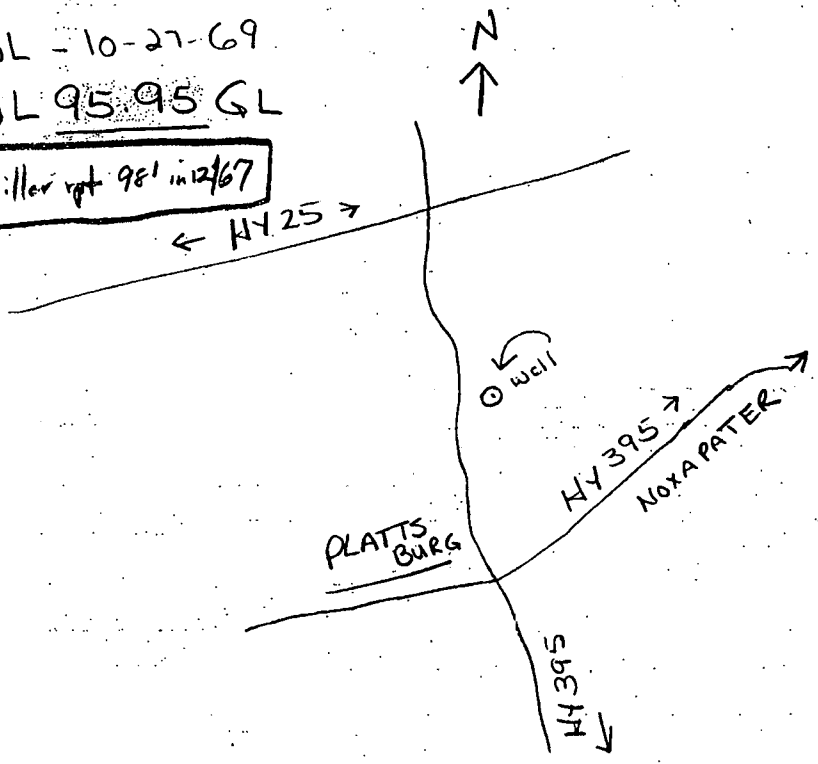 L - 10-27-69
N
L 95.95 GL
iller rpt 98' in 12/67
← HY 25 →
well
HY 395 →
NOXAPATER
PLATTS
BURG
HY 395